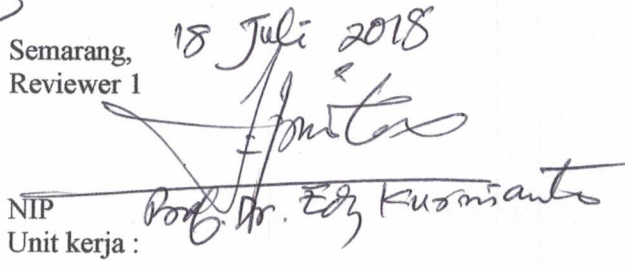 Semarang, 18 Juli 2018
Reviewer 1
Prof. Dr. Edy Kurnianto
NIP
Unit kerja :